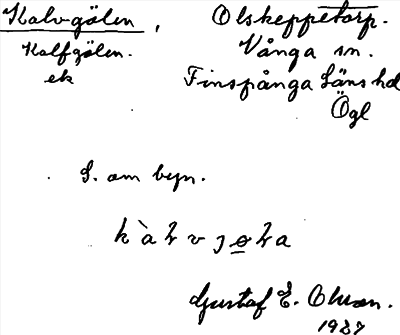 Kalv-gölen, Olskeppetorp.
Kalfgölen. Vånga sn.
ek Finspånga Läns hd
Ögl
S. om byn.
Gustaf E. Olsson.
1927